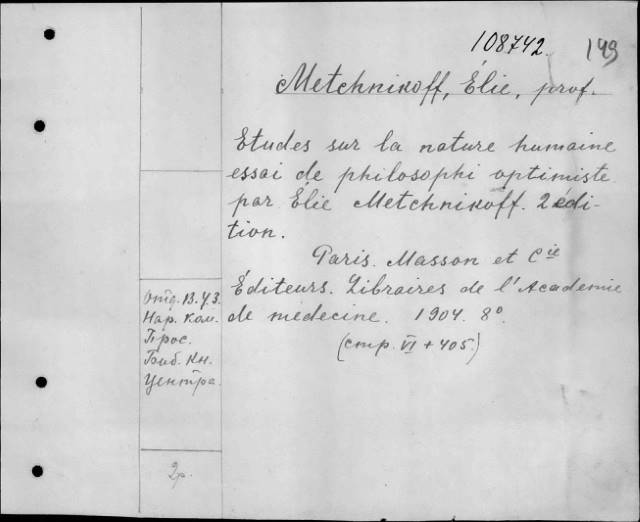 108742.
199
Metchnikoff, Élie, prof.
Etudes sur la nature humaine
essai de philosophi optimiste
par Élie Metchnikoff. 2 édi-
tion.
Paris. Masson et Cie
Éditeurs. Libraires de l'Academie
de médecine. 1904. 8°.
(стр. VI + 405.)
Нар. ком.
Прос.
Кн.
Центра.
2р.